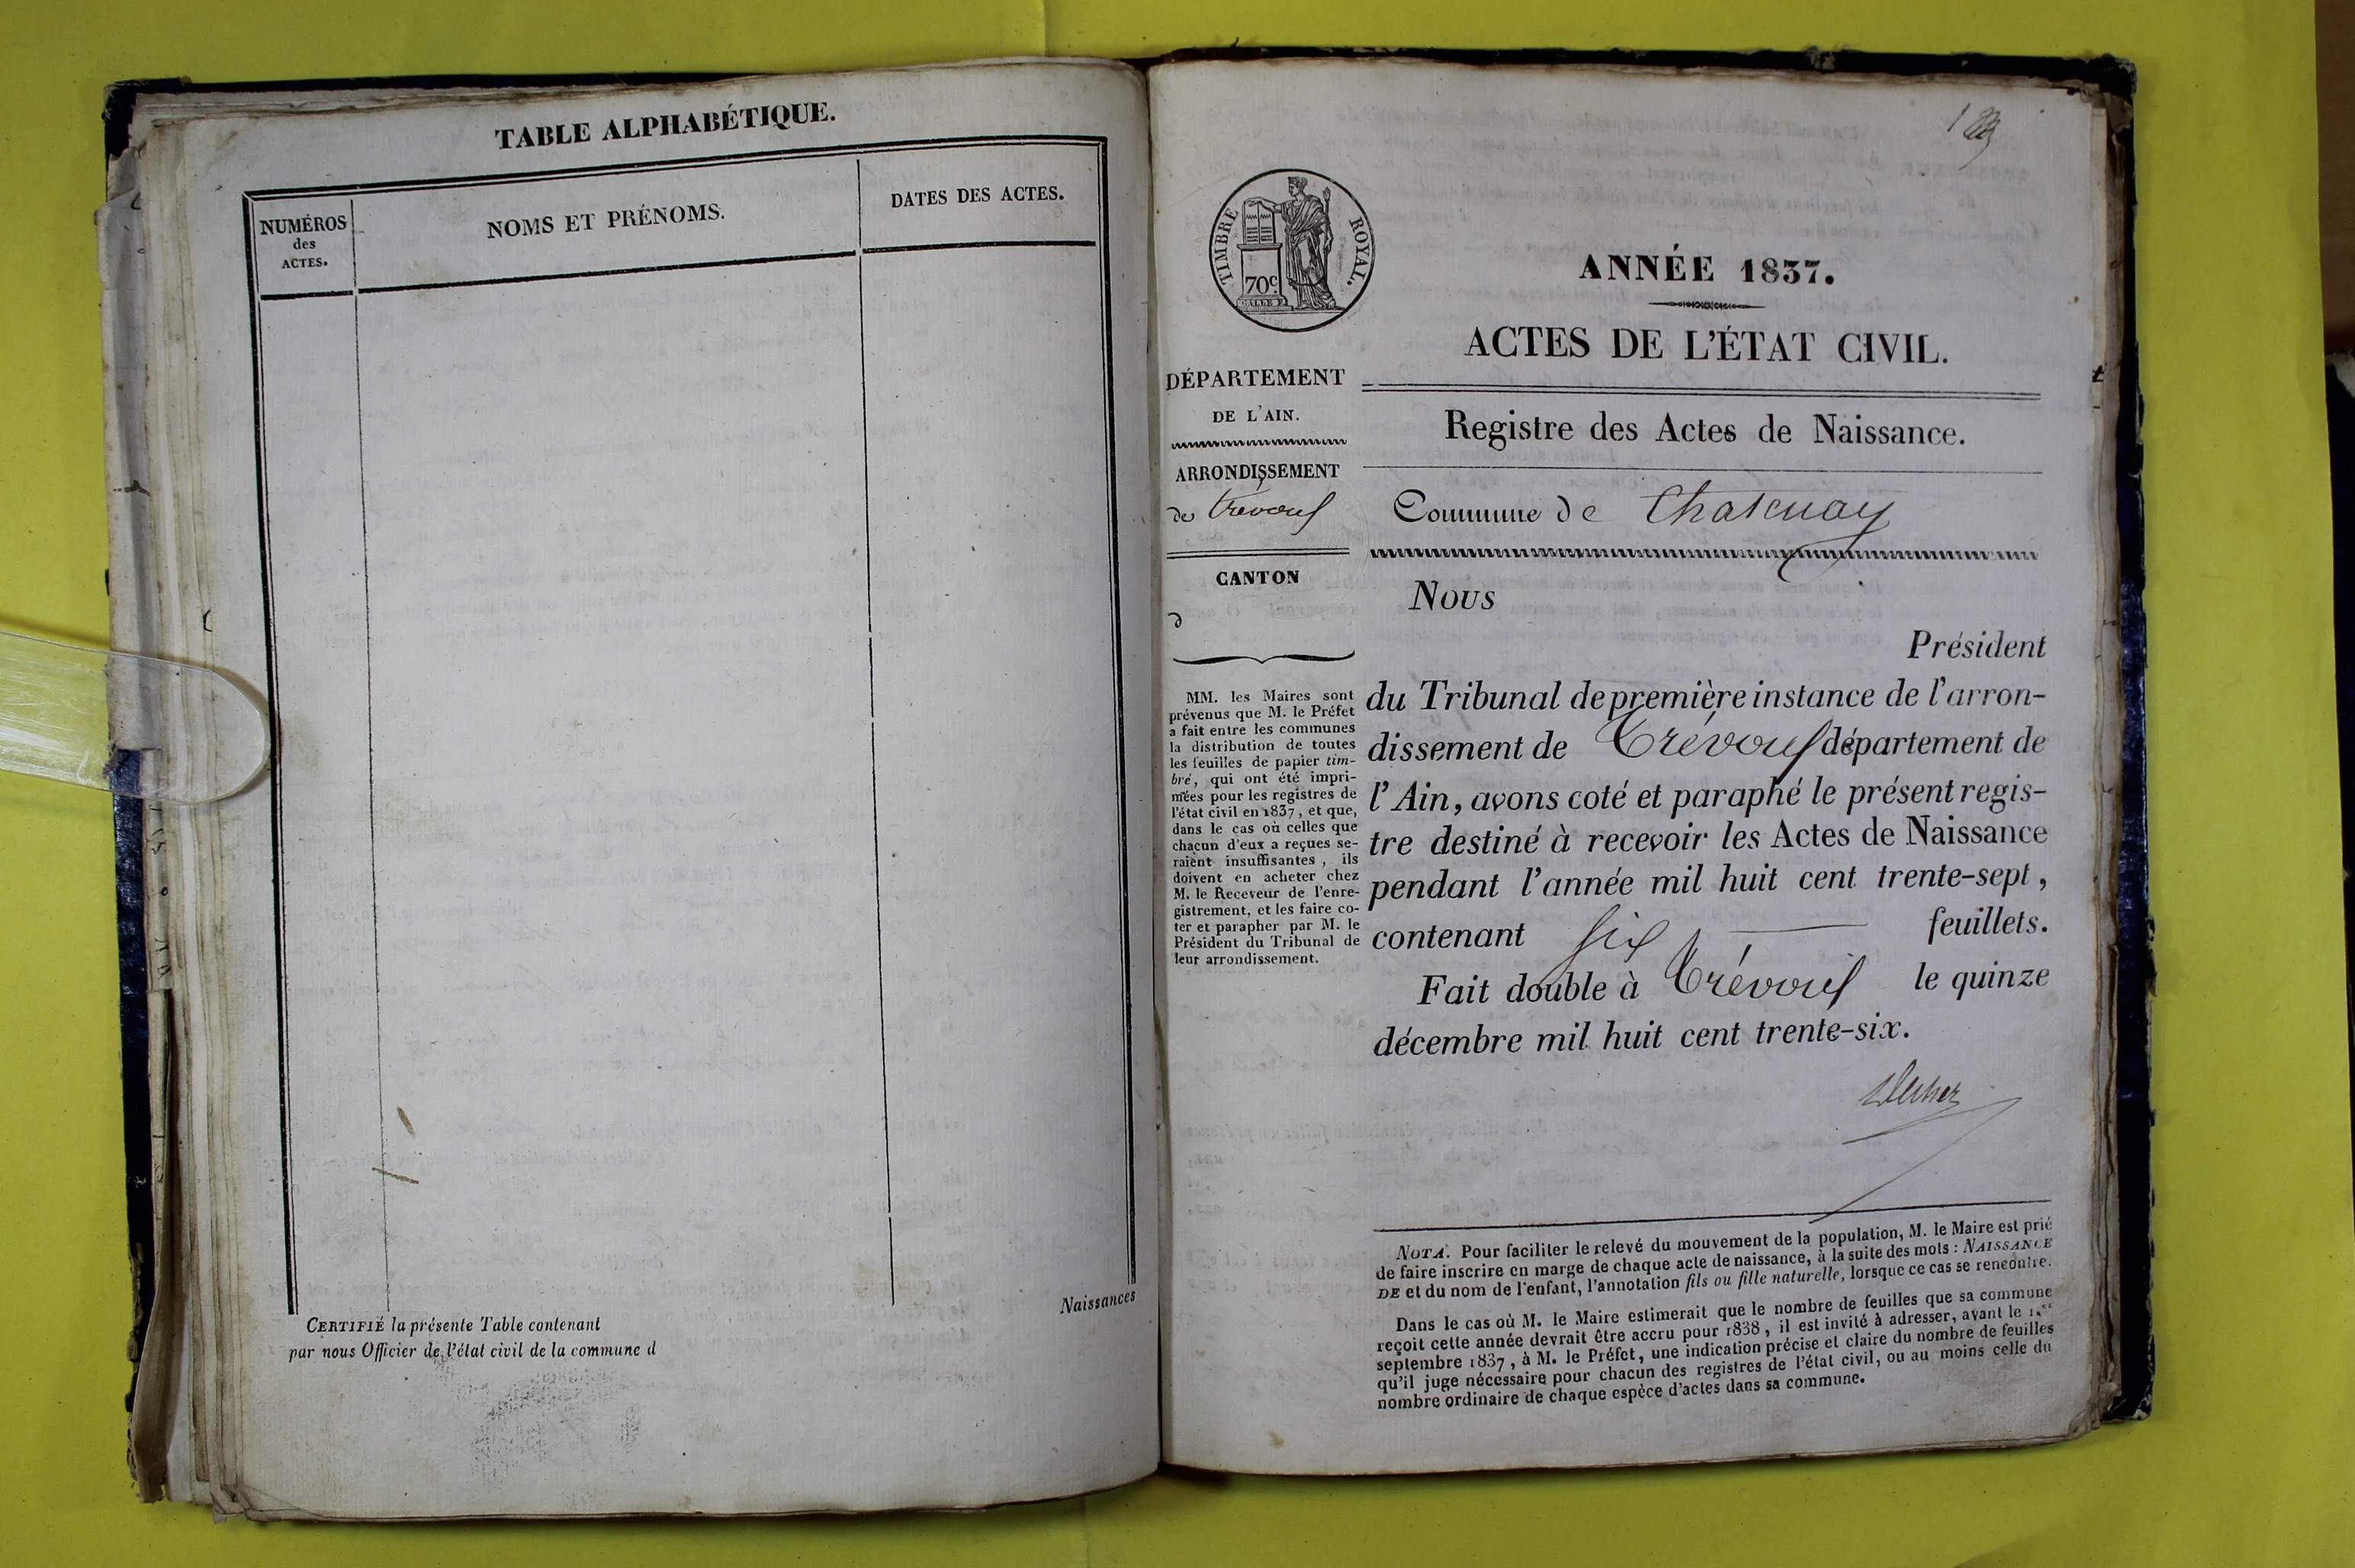 TABLE ALPHABÉTIQUE.
NUMÉROS
des
ACTES.
NOMS ET PRÉNOMS.
DATES DES ACTES.
Naissances
CERTIFIÉ la présente Table contenant
par nous Officier de l'état civil de la commune d
1
TIMBRE ROYAL.
70c.
ANNÉE 1837.
ACTES DE L'ÉTAT CIVIL.
DÉPARTEMENT
DE L'AIN.
Registre des Actes de Naissance.
ARRONDISSEMENT
de Trévoux
Commune de Chatenay
CANTON
d
MM. les Maires sont
prévenus que M. le Préfet
a fait entre les communes
la distribution de toutes
les feuilles de papier tim-
bré, qui ont été impri-
mées pour les registres de
l'état civil en 1837, et que,
dans le cas où celles que
chacun d'eux a reçues se-
raient insuffisantes, ils
doivent en acheter chez
M. le Receveur de l'enre-
gistrement, et les faire co-
ter et parapher par M. le
Président du Tribunal de
leur arrondissement.
Nous
Président
du Tribunal de première instance de l'arron-
dissement de Trévoux département de
l'Ain, avons coté et paraphé le présent regis-
tre destiné à recevoir les Actes de Naissance
pendant l'année mil huit cent trente-sept,
contenant six feuillets.
Fait double à Trévoux le quinze
décembre mil huit cent trente-six.
NOTA. Pour faciliter le relevé du mouvement de la population, M. le Maire est prié
de faire inscrire en marge de chaque acte de naissance, à la suite des mots : NAISSANCE
DE et du nom de l'enfant, l'annotation fils ou fille naturelle, lorsque ce cas se rencontre.
Dans le cas où M. le Maire estimerait que le nombre de feuilles que sa commune
reçoit cette année devrait être accru pour 1838, il est invité à adresser, avant le 1.er
septembre 1837, à M. le Préfet, une indication précise et claire du nombre de feuilles
qu'il juge nécessaire pour chacun des registres de l'état civil, ou au moins celle du
nombre ordinaire de chaque espèce d'actes dans sa commune.